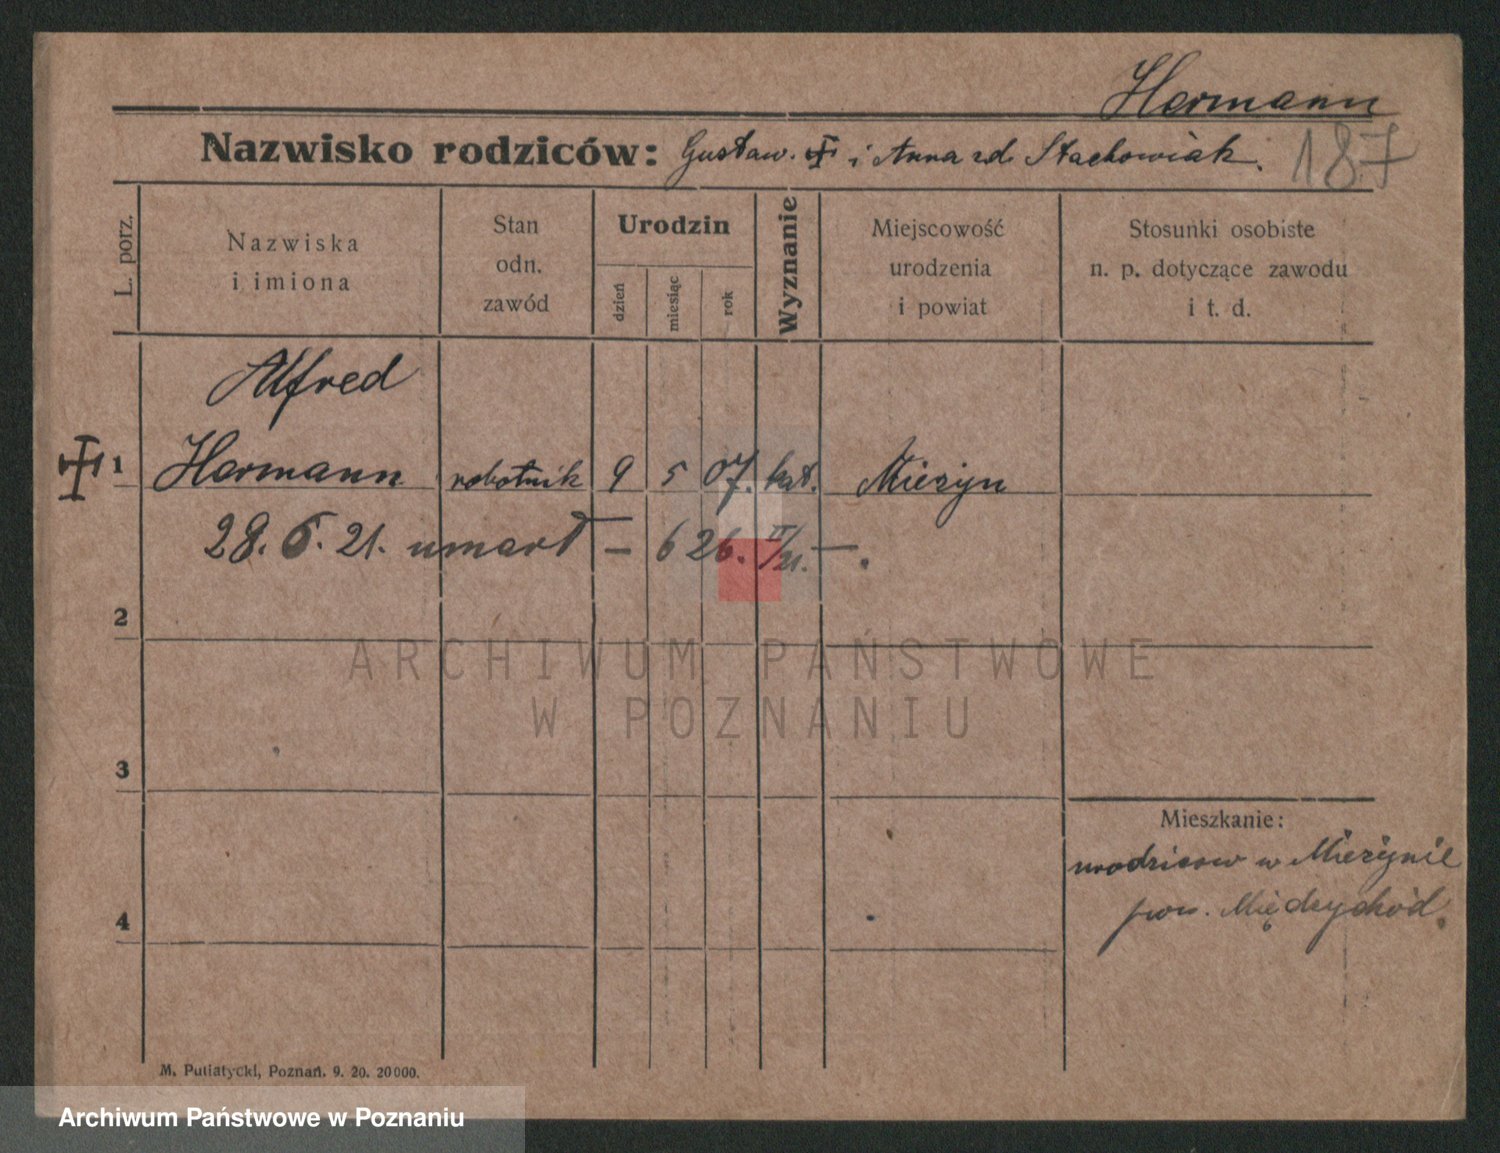 Hermann
Nazwisko rodziców: Gustaw. i Anna zd Stachowiak. 187
L. porz.
Nazwiska
i imiona
Stan
odn.
zawód
Urodzin
dzień
miesiąc
rok
Wyznanie
Miejscowość
urodzenia
i powiat
Stosunki osobiste
n. p. dotyczące zawodu
i t. d.
Alfred
1 Hermann robotnik 9 5 07. kat. Mierzyn
28. 6. 21. umarł — 626. II/21. —.
2
ARCHIWUM PAŃSTWOWE
W POZNANIU
3
Mieszkanie:
w
pow. Międzychód.
4
M. Putiatycki, Poznań. 9. 20. 20000.
Archiwum Państwowe w Poznaniu